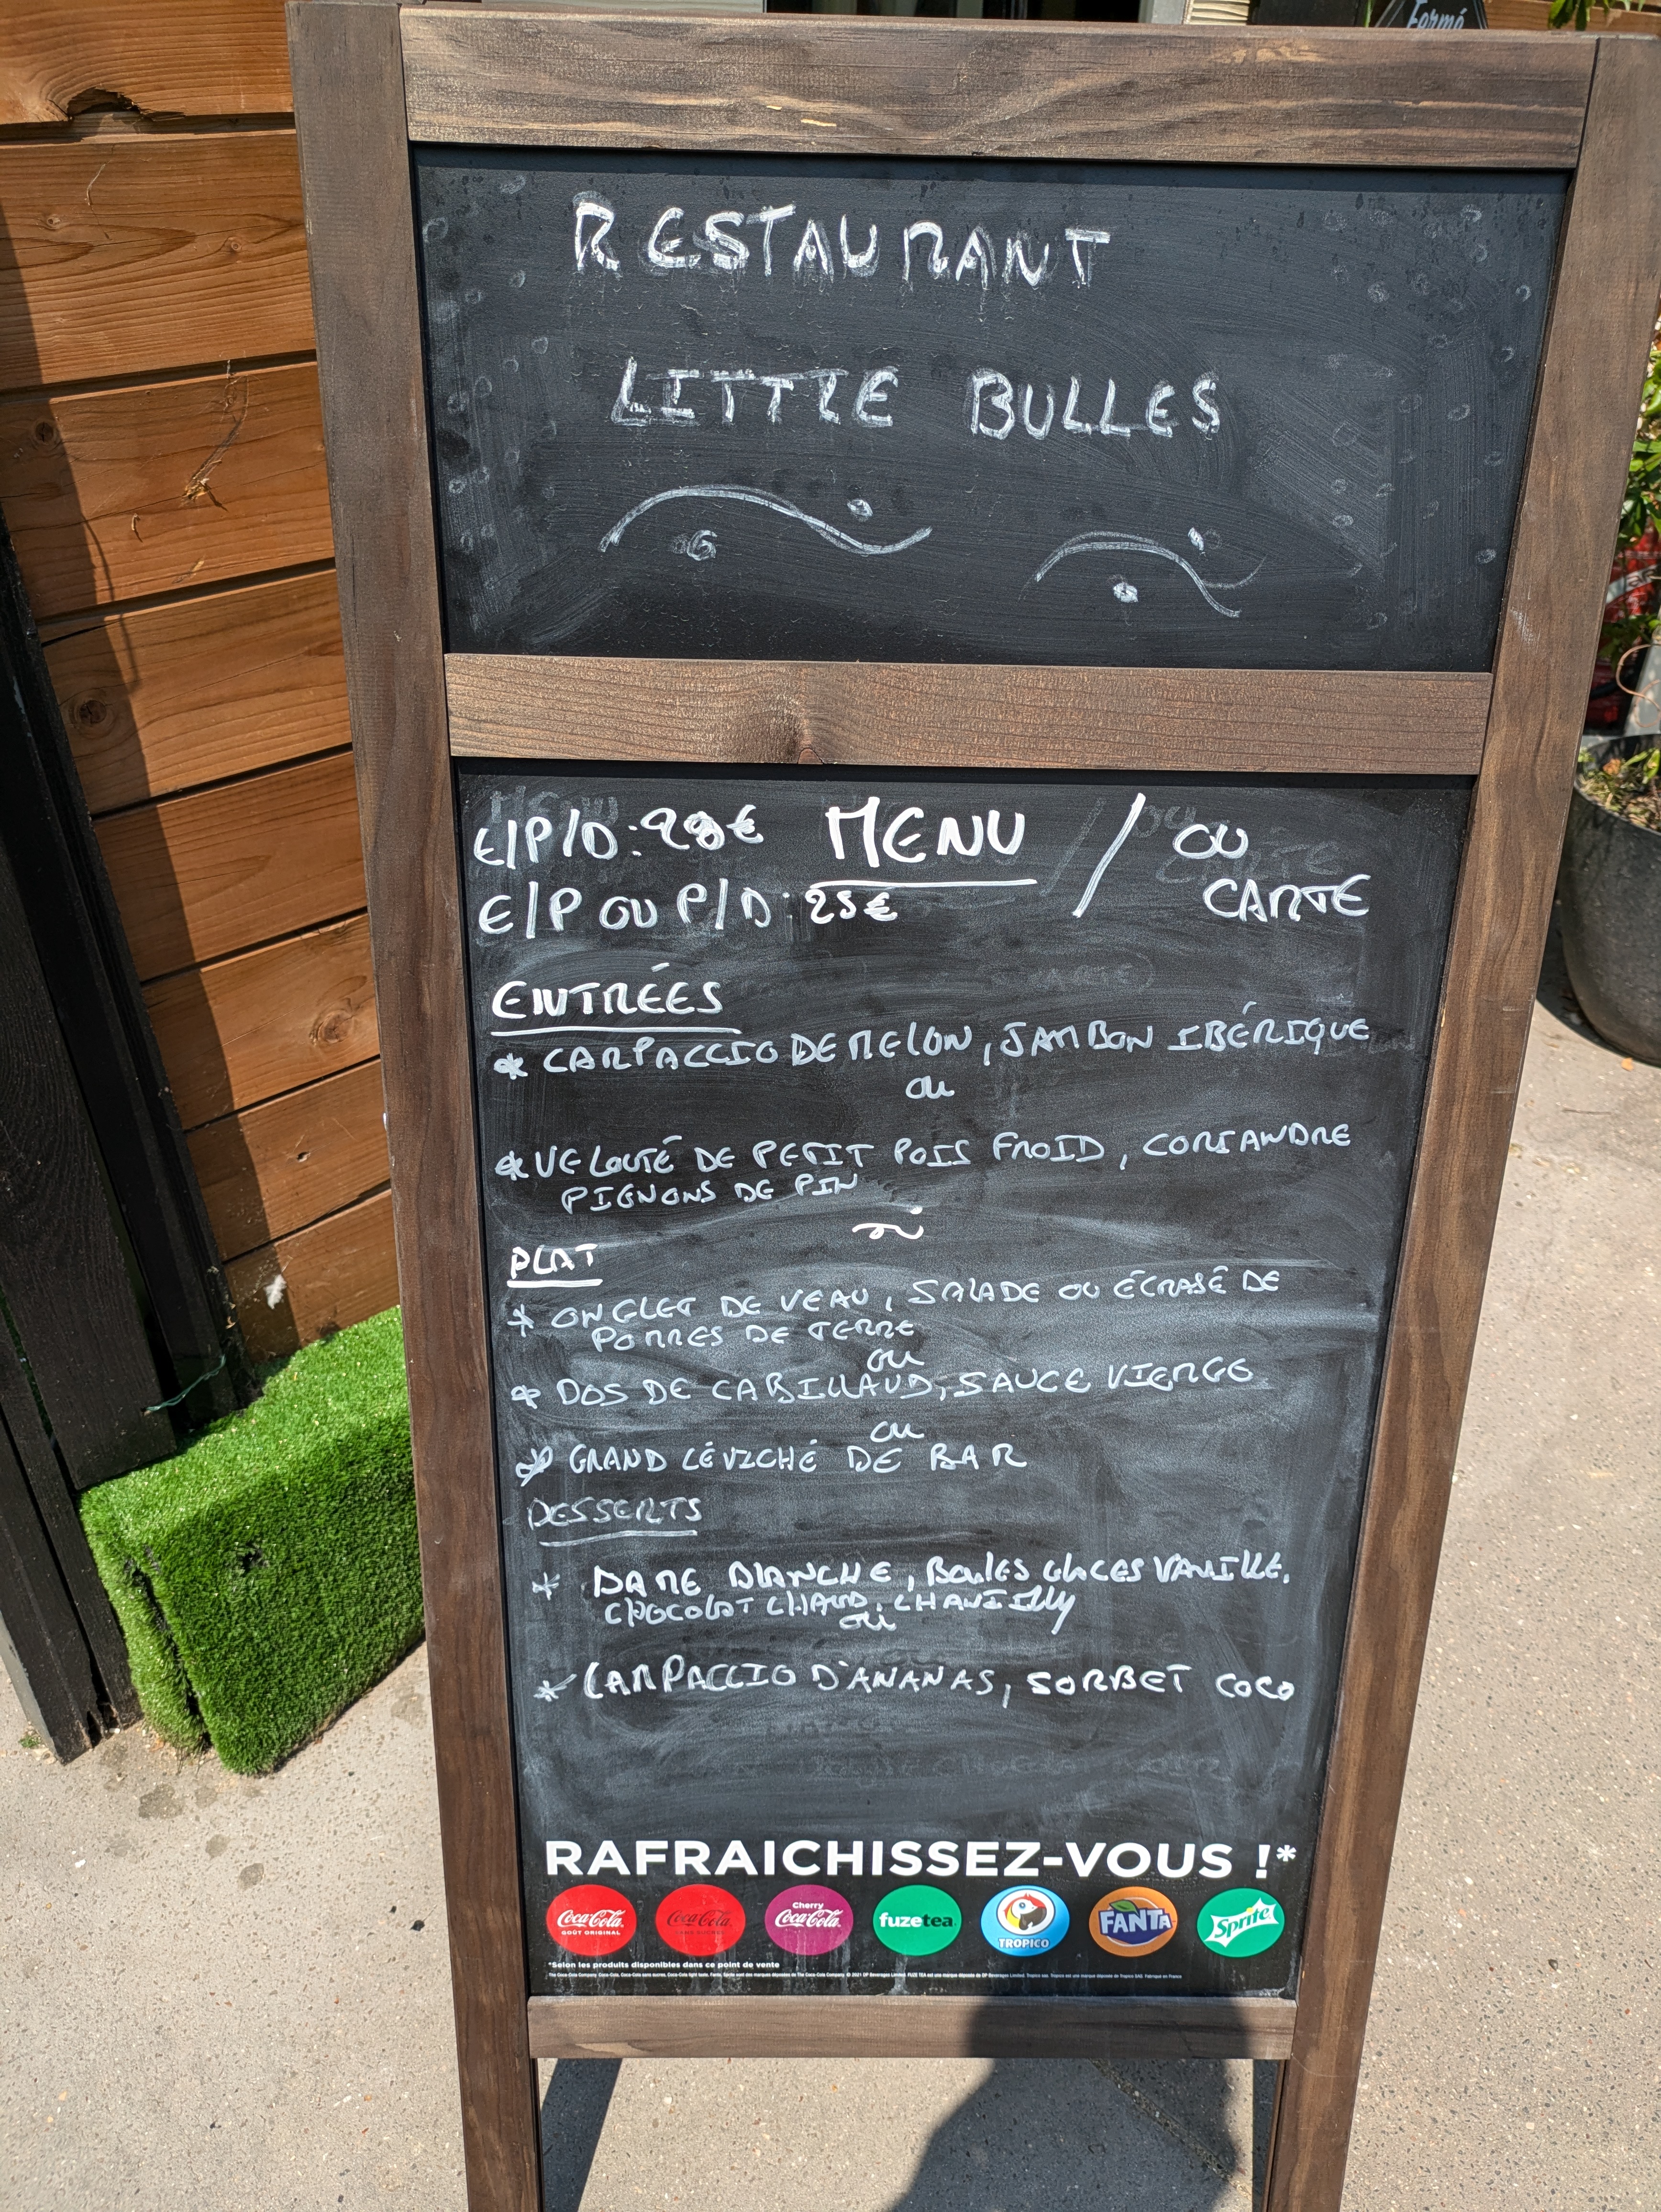 Fermé
RESTAURANT
LITTLE BULLES
E/P/D: 28€ MENU / OU
E/P OU P/D: 25€ CARTE
ENTRÉES
* CARPACCIO DE MELON, JAMBON IBÉRIQUE
ou
* VELOUTÉ DE PETIT POIS FROID, CORIANDRE
PIGNONS DE PIN
PLAT
* ONGLET DE VEAU, SALADE OU ÉCRASÉ DE
POMMES DE TERRE
ou
* DOS DE CABILLAUD, SAUCE VIERGE
ou
* GRAND CÉVICHÉ DE BAR
DESSERTS
* DAME BLANCHE, Boules GLACES VANILLE,
CHOCOLAT CHAUD, CHANTILLY
ou
* CARPACCIO D'ANANAS, SORBET COCO
RAFRAICHISSEZ-VOUS !*
Coca-Cola GOÛT ORIGINAL Coca-Cola Cherry Coca-Cola fuzetea TROPICO FANTA Sprite
*Selon les produits disponibles dans ce point de vente